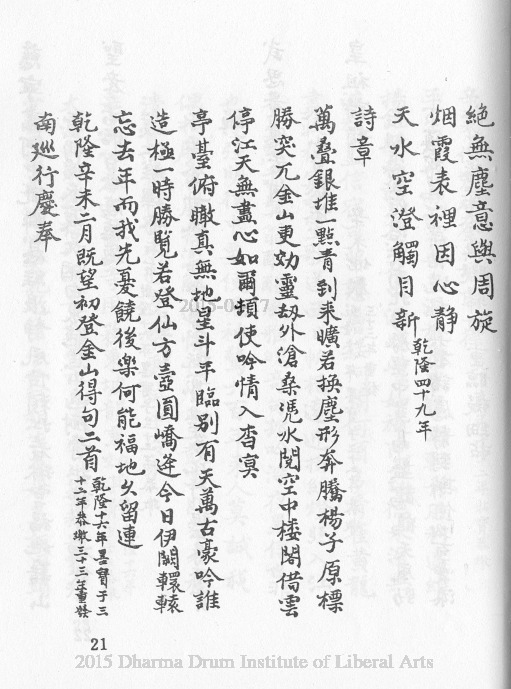 絕無塵意與周旋
烟霞表裡因心靜
天水空澄觸目新乾隆四十九年
詩章
萬疊銀堆一點青到来曠若換塵形奔騰楊子原標
勝突兀金山更効靈刼外滄桑凴水閱空中楼閣借雲
停江天無盡心如爾頓使吟情入杳㝠
亭臺俯瞰真無地星斗平臨别有天萬古豪吟誰
造極一時勝覽若登仙方壺圓嶠逢今日伊闕轘轅
忘去年而我先憂饒後樂何能福地久留連
乾隆辛未二月既望初登金山得句二首乾隆十六年
南廵行慶奉
21
2015 Dharma Drum Institute of Liberal Arts